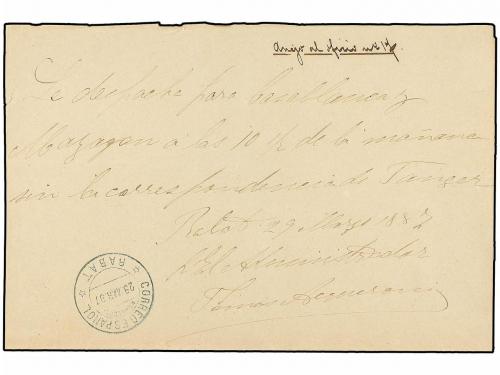 Anejo al oficio nº 14
Se despacho para Casablanca y
Mazagan a las 10 ½ de la mañana
sin la correspondencia de Tanger
Rabat 29 Marzo 1887
El Administrador
Tomas
CORREO ESPAÑOL
29 MAR 87
* RABAT *